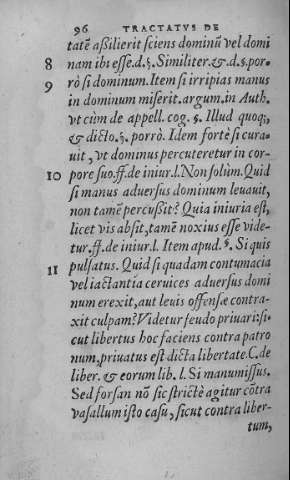 96 TRACTATVS DE
tatē aßilierit sciens dominū vel domi
8 nam ibi esse.d.§. Similiter.&.d.s.por-
9 rò si dominum. Item si irripias manus
in dominum miserit. argum.in Auth.
vt cùm de appell. cog. §. Illud quoq;,
& dicto.§. porrò. Idem fortè si cura-
uit, vt dominus percuteretur in cor-
10 pore suo.ff.de iniur.l. Non solùm. Quid
si manus aduersus dominum leuauit,
non tamē percußit? Quia iniuria est,
licet vis absit, tamē noxius esse vide-
tur.ff.de iniur.l. Item apud.§. Si quis
11 pulsatus. Quid si quadam contumacia
vel iactantia ceruices aduersus domi
num erexit, aut leuis offensæ contra-
xit culpam? Videtur feudo priuari: si-
cut libertus hoc faciens contra patro
num, priuatus est dicta libertate. C.de
liber. & eorum lib. l. Si manumissus.
Sed forsan nō sic strictè agitur cōtra
vasallum isto casu, sicut contra liber-
tum,